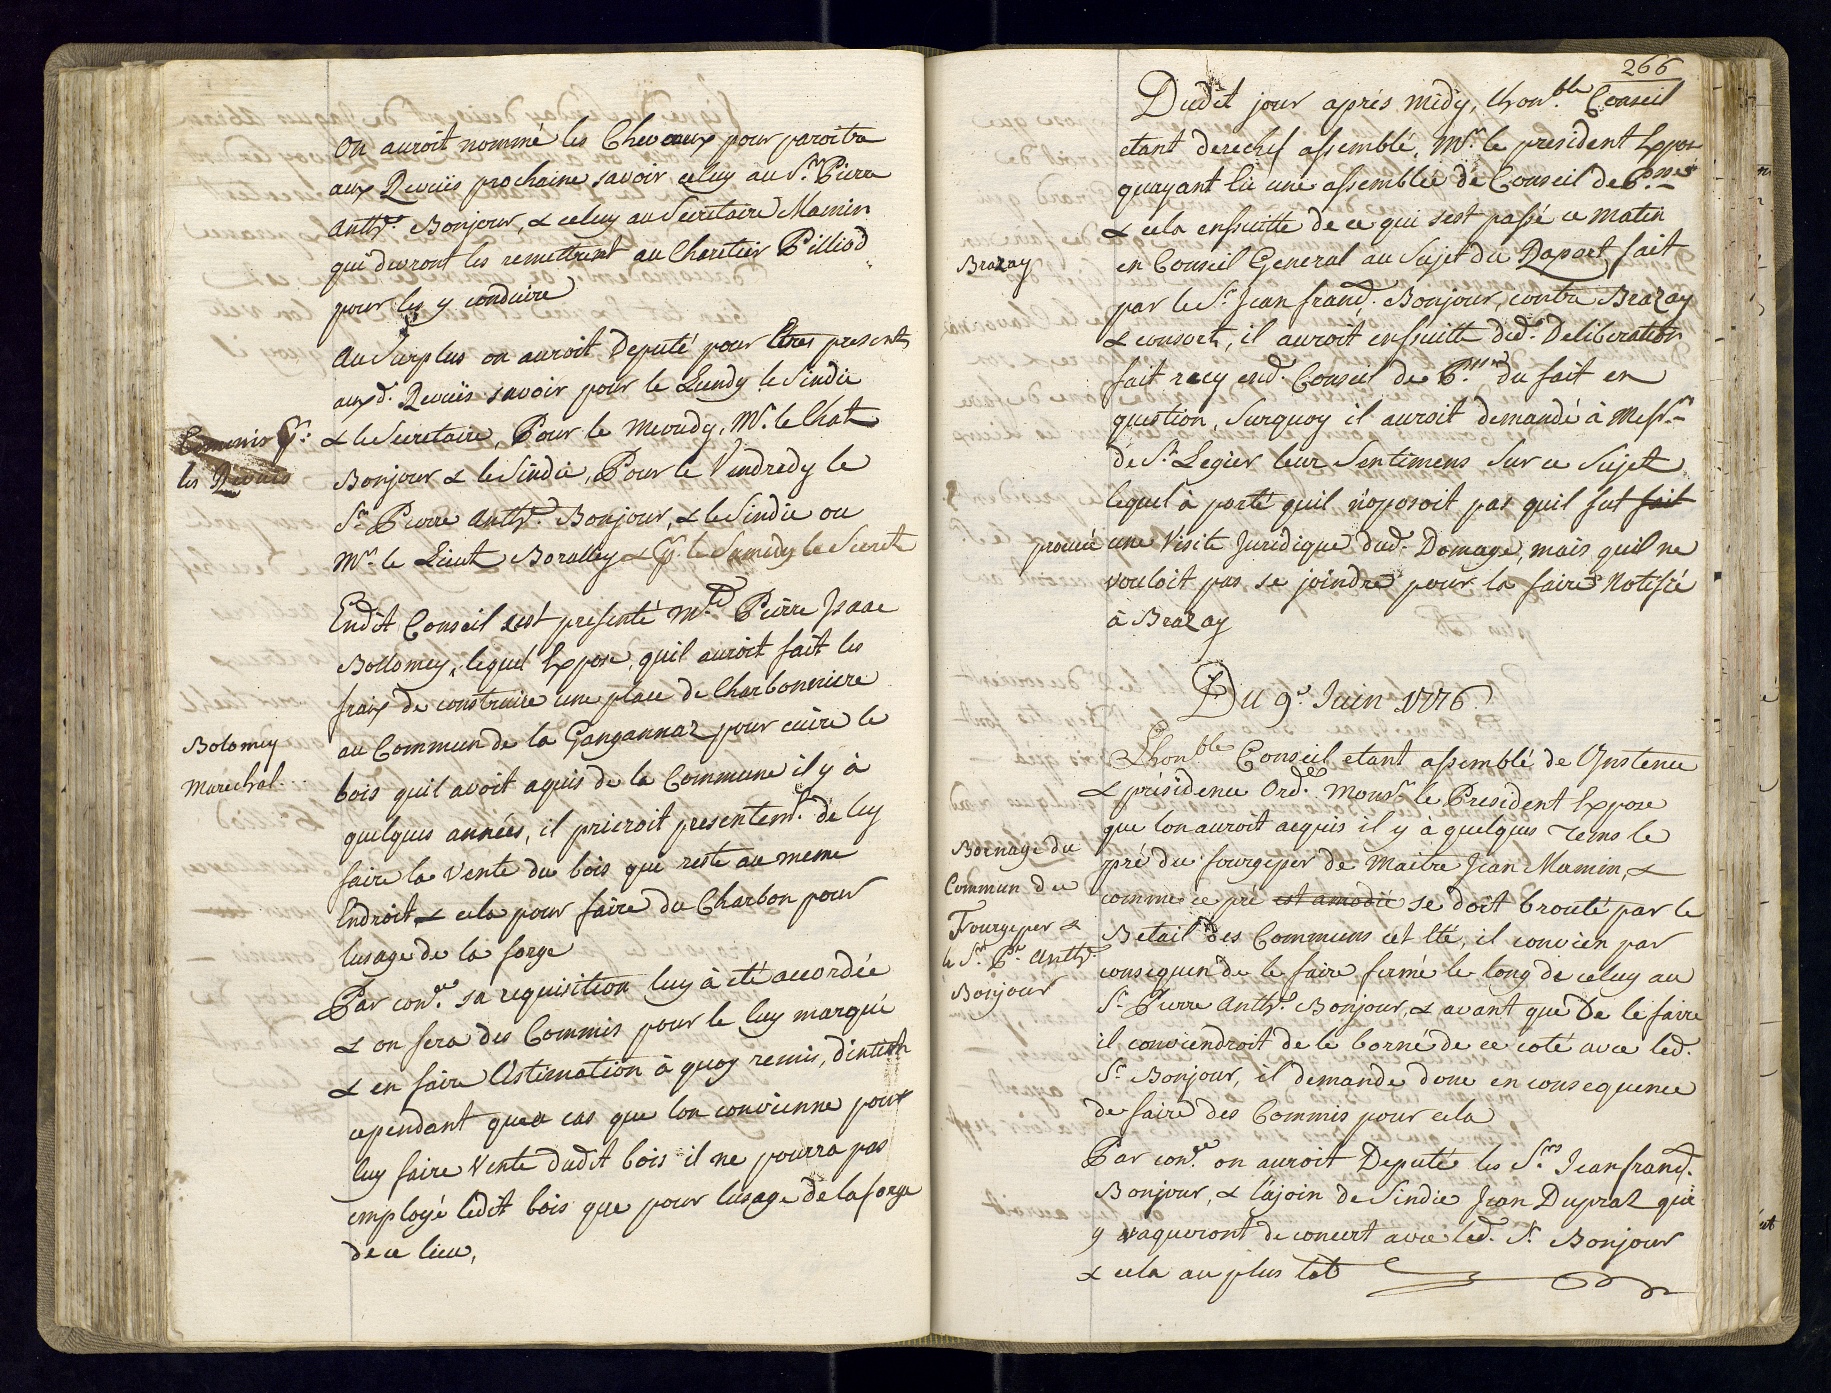 On auroit nommé les Chevaux pour paroitre
aux Revuës prochaine savoir celuy au Sr. Pierre
Anthe. Bonjour, & celuy au Secretaire Mamin
qui devront les remettrent au Charetier Pilliod
pour les y conduire
Au Surplus on auroit Deputé pour Etres presents
auxd. Revuës savoir pour le Lundy le Sindic
Commis pr.
& le Secretaire, Pour le Mecredy, Mr. le Chat.
les Revuës
Bonjour & le Sindic, Pour le Vendredy le
Sr. Pierre Anthe. Bonjour, & le Sindic ou
Mr. le Lieut. Boralley & pr. le Samedy le Secret.
Endit Conseil s'est presenté Mtre Pierre Isaac
Bollomey, lequel Expose, quil auroit fait les
fraix de construire une place de Charbonniere
Bolomey
au Commun de la Gangannaz pour cuire le
Marechal.
bois quil avoit aquis de la Commune il y à
quelques années, il prieroit presentemt. de luy
faire la Vente du bois qui reste au meme
Endroit & cela pour faire du Charbon pour
lusage de la forge
Par cone. sa requisition luy à été accordée
& on fera des Commis pour le luy marqué
& en faire l'Estimation à quoy remis, d'intention
cependant quea cas que lon convienne pour
luy faire Vente dudit bois il ne pourra pas
employé ledit bois que pour lusage de la forge
de ce lieu,
266
Dudit jour après midy, lhonble. Conseil
etant derechef assemblé, Mr. le president Expose
quayant lié une assemblée de Conseil de Bnne.
& cela ensuitte de ce qui sest passé ce matin
Brazay
en Conseil General au Sujet du Raport fait
par le Sr. Jean franç. Bonjour, contre Brazay
& consort, il auroit ensuitte dud. Deliberation
fait recy end. Conseil de B. du fait en
question, Surquoy il auroit demandé à Messrs.
de St. Legier leur Sentimens Sur ce Sujet
lequel à porté quil n'oposoit pas quil fut fait
procuré une Visite Juridique dud. Domage, mais quil ne
vouloit pas se joindre pour la faire Notifié
à Brazay
Du 9e. Juin 1776.
Lhonble Conseil etant assemblé de Constence
& présidence Ordre. Monsr. le President Expose
que lon auroit acquis il y à quelques tems le
Bornage du
pré du fourgeper de Maitre Jean Mamin, &
Commun du
comme ce pré est amodié se doit brouté par le
Fourgeper &
Betail des Communs cet Eté, il convien par
le Sr. Pe. Anthe.
consequend de le faire fermé le long de celuy au
Bonjour
Sr. Pierre Anthe. Bonjour, & avant que De le faire
il conviendroit de le borné de ce coté avec led.
Sr. Bonjour, il demande donc en consequence
de faire des Commis pour cela
Par cone. on auroit Deputé les Srs. Jean franç.
Bonjour, & l'ajoin de Sindic Jean Dupraz qui
y vaqueront de concert avec led. Sr. Bonjour
& cela au plus tot